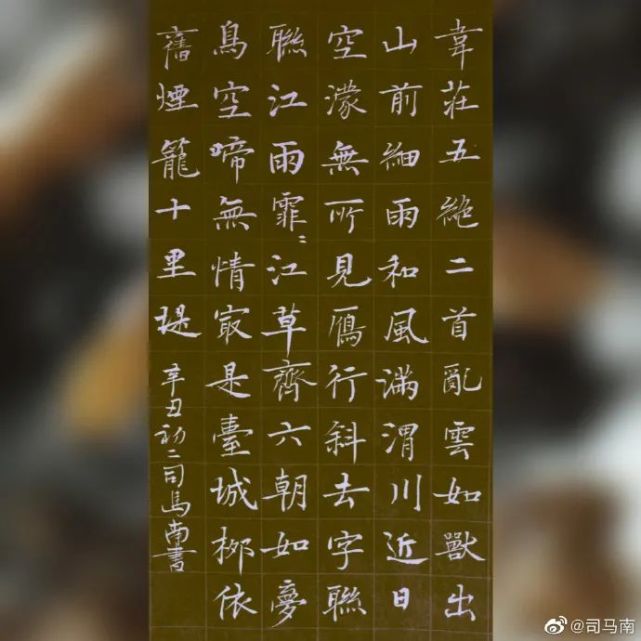 韋莊五絶二首亂雲如獸出
山前細雨和風滿渭川近日
空濛無所見鴈行斜去字聯
聯江雨霏〻江草齊六朝如夢
鳥空啼無情㝡是臺城柳依
舊煙籠十里堤
辛丑初二司馬南書
@司马南